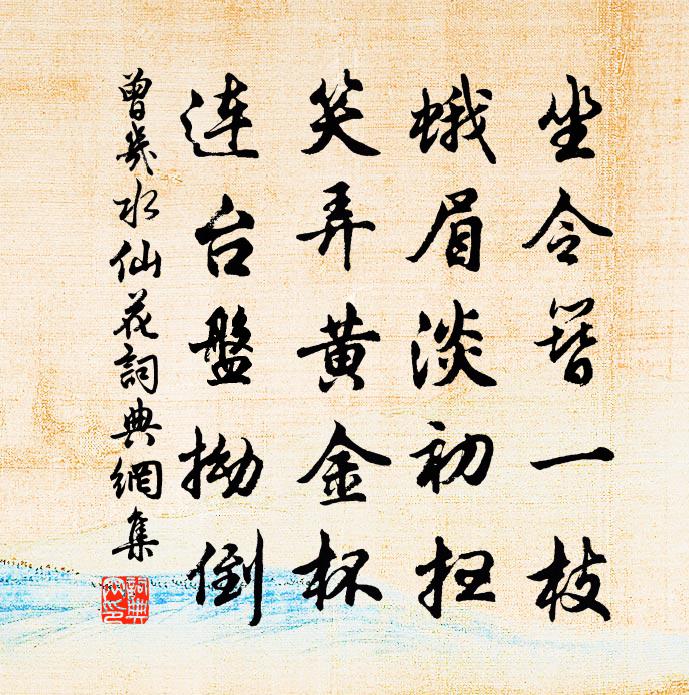 坐令簪一枝
蛾眉淡初扫
笑弄黄金杯
连台盘拗倒
曾幾水仙花詞典網集